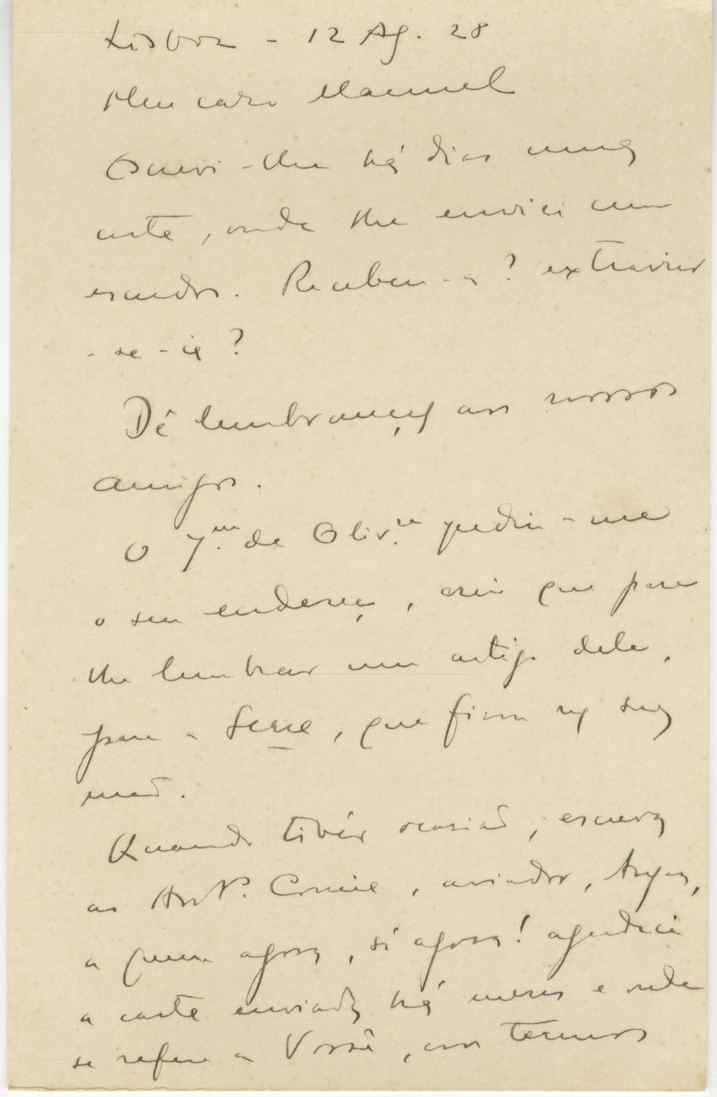 Lisboa - 12 Ag. 28
Meu caro Manuel
Escrevi-lhe há dias uma
carta, onde lhe enviei cem
escudos. Recebeu-a? extraviar
-se-ia?
Dê lembranças aos nossos
amigos.
O de Oliv.ra pediu-me
o seu endereço, creio que para
lhe lembrar um artigo dele,
para a Seara, que ficou na sua
mão.
Quando tivér ocasião, escreva
ao Corrêa, aviador,
a quem agora, só agora! agradeci
a carta enviada há meses e onde
se refere a Você, nos termos